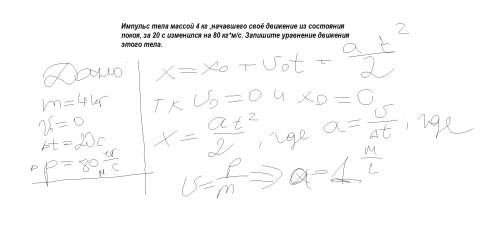 Импульс тела массой 4 кг ,начавшего своё движение из состояния
покоя, за 20 с изменился на 80 кг*м/с. Запишите уравнение движения
этого тела.
Дано
m=4кг
v₀=0
Δt=20с
p=80 кг м/с
x=x₀+v₀t+at²/2
тк v₀=0 и x₀=0
x=at²/2, где a=v/Δt, где
v=p/m ⇒ a=1 м/с